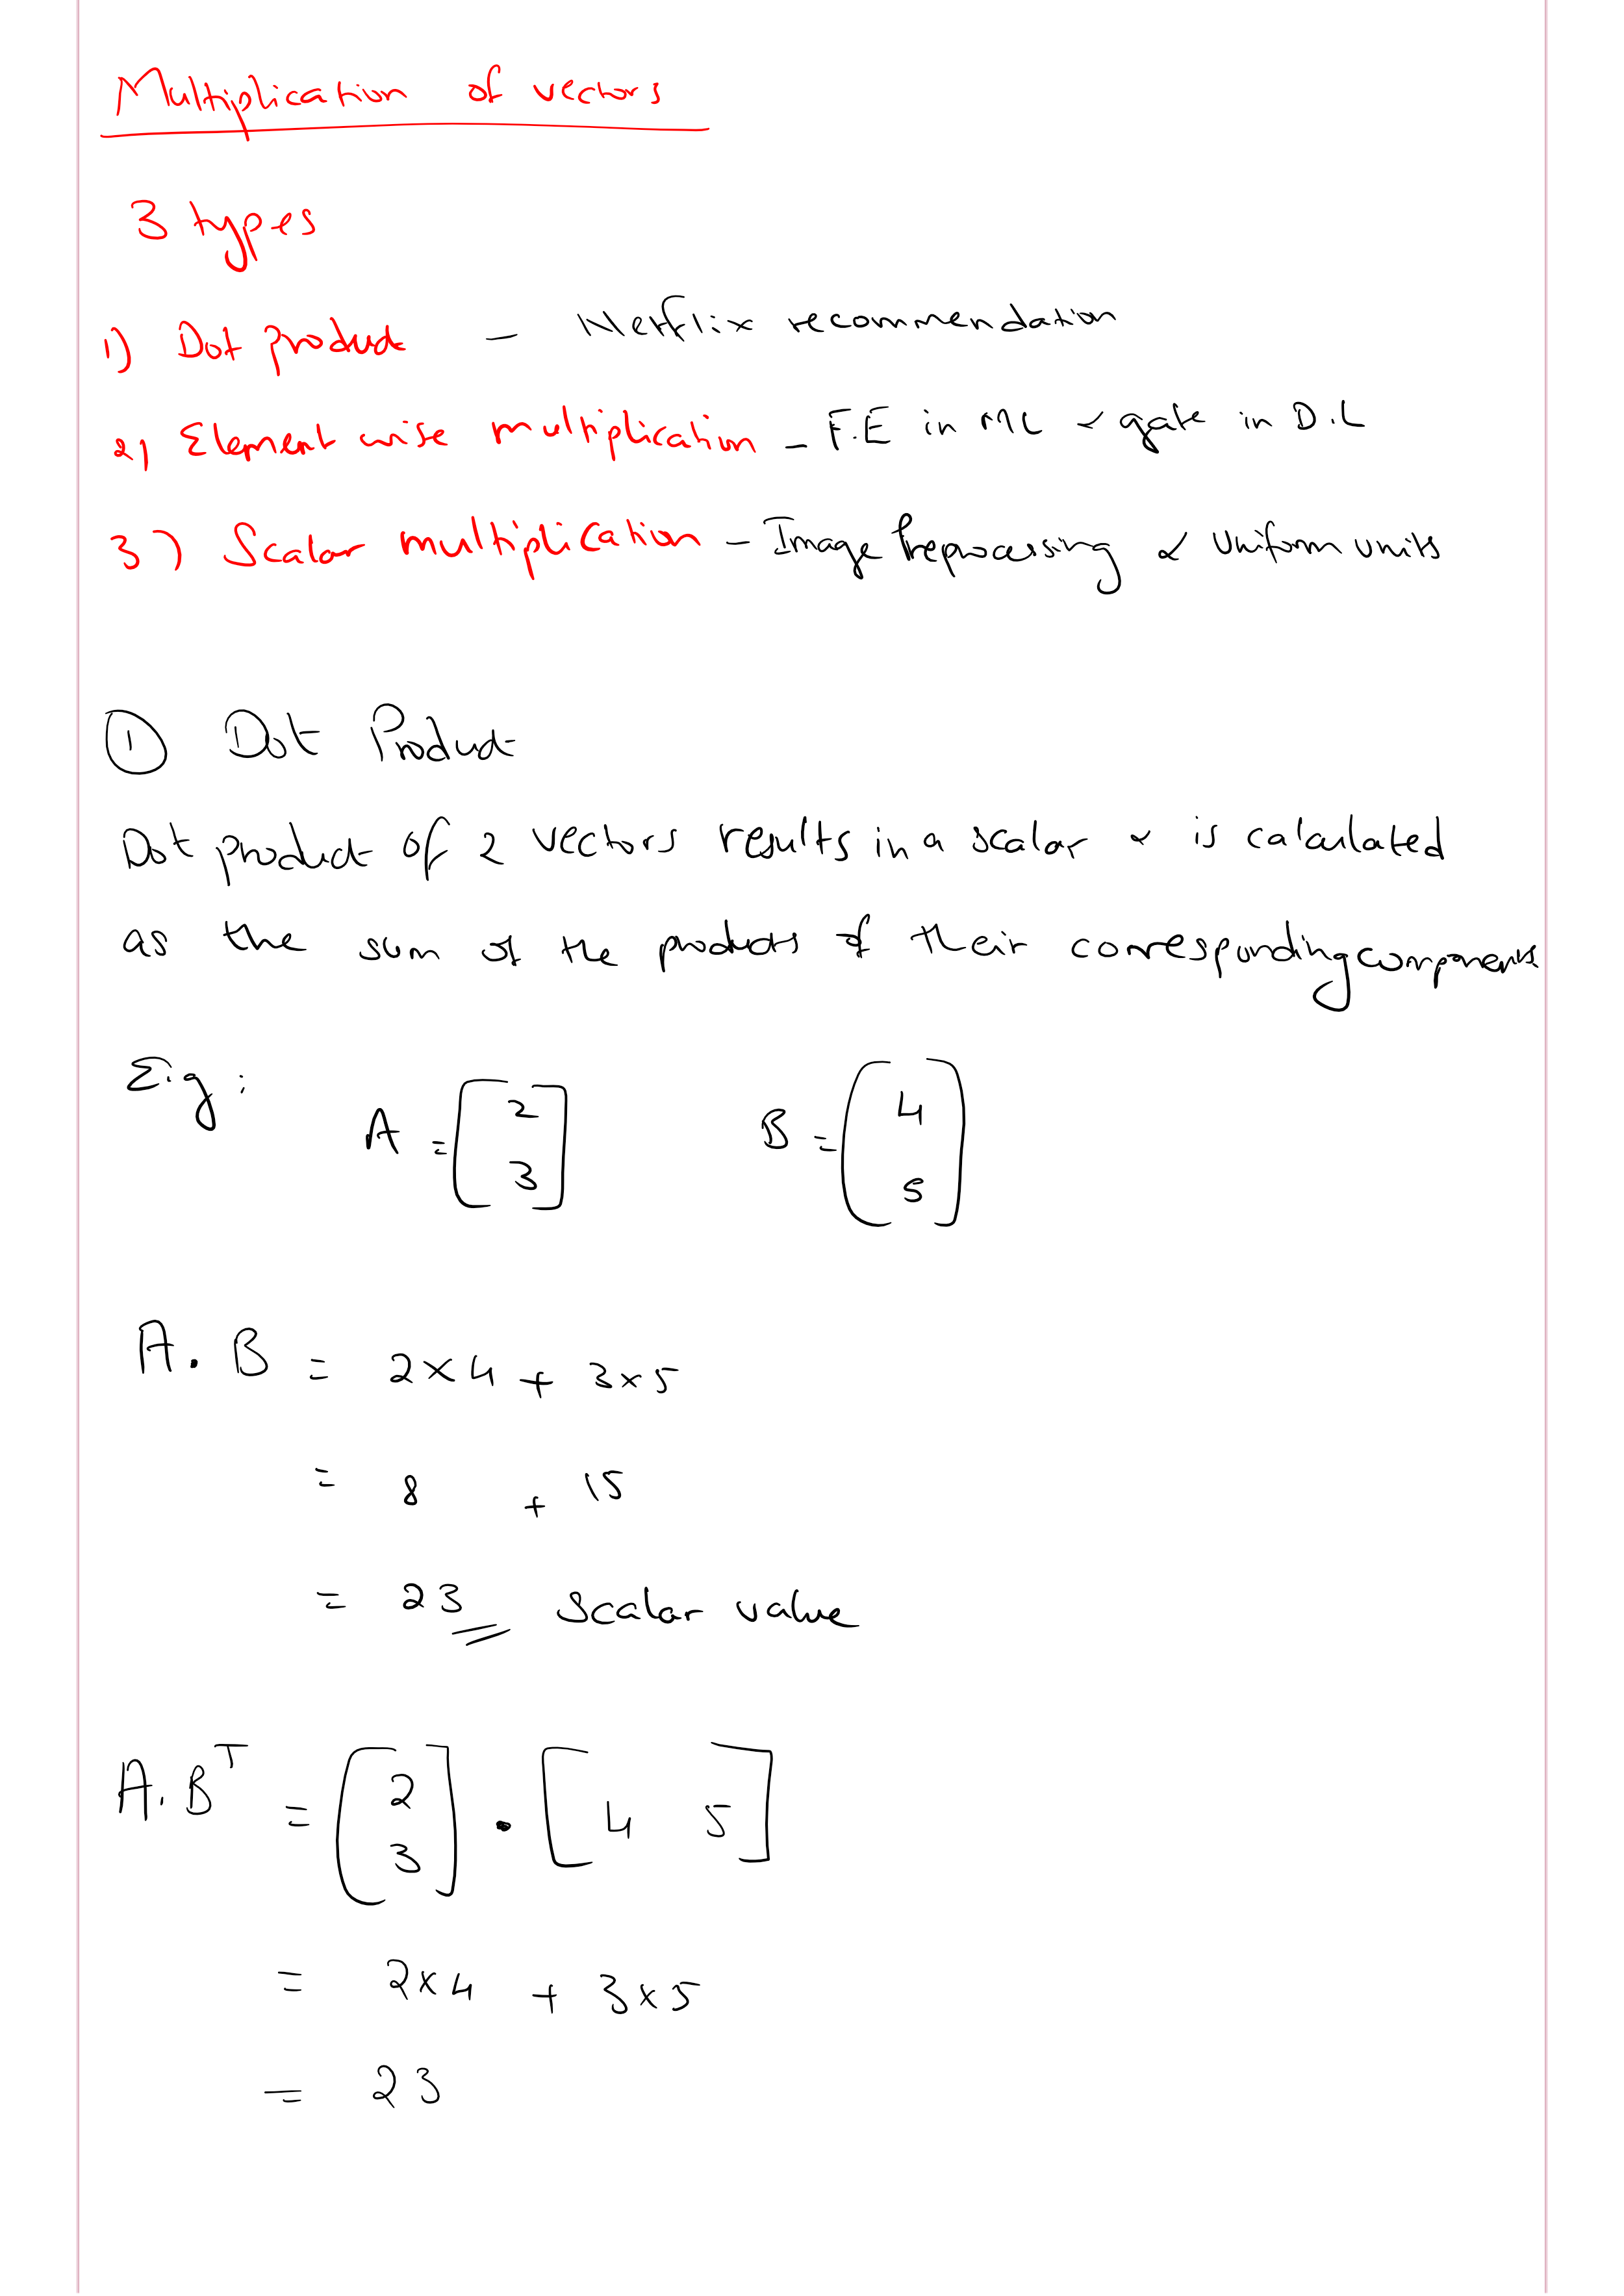 Multiplication of vectors
3 types
1) Dot product – Netflix recommendation
2) Element wise multiplication – F.E in ML & gate in D.L
3) Scalar multiplication – Image Preprocessing & Uniform units
① Dot Product
Dot product of 2 vectors results in a scalar & is calculated
as the sum of the products of their corresponding components
E.g :
A = [2 3] B = [4 5]
A . B = 2×4 + 3×5
= 8 + 15
= 23 Scalar value
A . Bᵀ = [2 3] • [4 5]
= 2×4 + 3×5
= 23